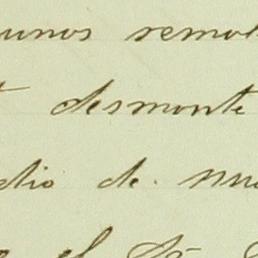 unos remo
desmonte
dio de mu
el